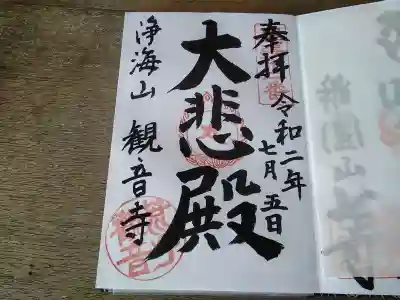 奉拝
令和二年
七月五日
大悲殿
浄海山 観音寺